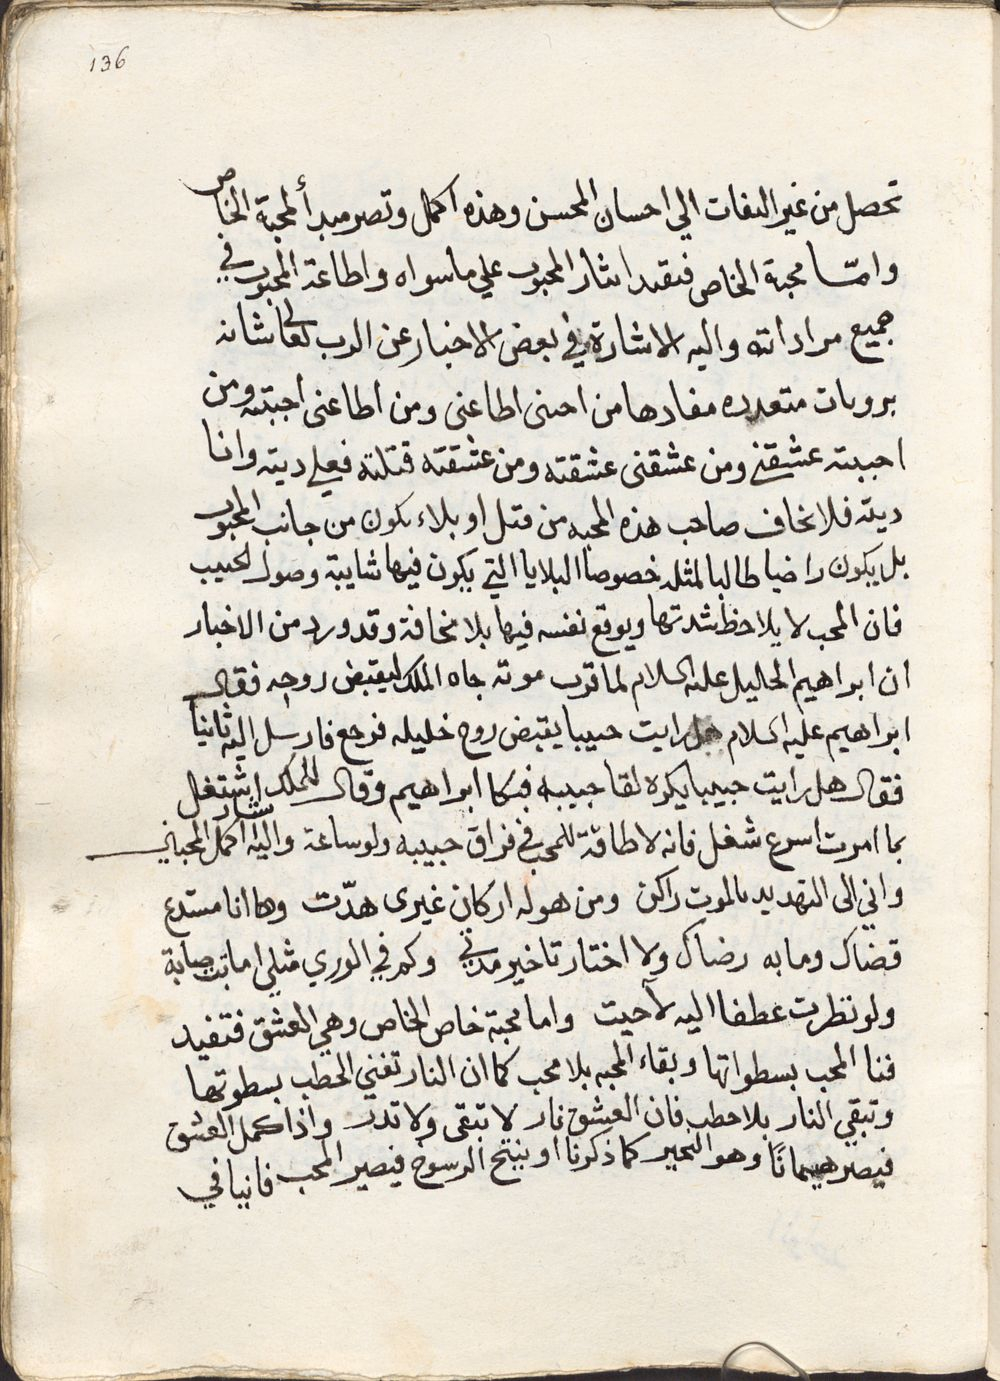 136
تحصل من غير التفات الي احسان المحسن وهذه اكمل وتصر مبدأ لمحبة الخاص
وامّا محبة الخاص فتقيد ايثار المحبوب علي ماسواه واطاعة المحبوب في
جميع مراداته واليه الاشارة في بعض الاخبار عن الرب تعالى شانه
بروبات متعدده مفادها من احبنى اطاعنى ومن اطاعنى احببته ومن
احببته عشقني ومن عشقنى عشقته ومن عشقته قتلته فعلي ديته وانا
ديته فلا يخاف صاحب هذه المحبه من قتل او بلاء يكون من جانب المحبوب
بل يكون راضيا طالبا لمثله خصوصاً البلايا التي يكون فيها شايبة وصول لحبيب
فان المحب لا يلاحظ شدتها ويوقع نفسه فيها بلا مخافة وقد ورد من الاخبار
ان ابراهيم الخاليل عليه السلام لما قرب موته جاه الملك ليقبض روحه فقال
ابراهيم عليه السلام هل رايت حبيبا يقبض روح خليله فرجع فارسل اليه ثانياً
فقال هل رايت حبيبا يكره لقا حبيبه فبكا ابراهيم وقال للملك اشتغل
بما امرت اسرع شغل فانه لا طاقة للمحب في فراق حبيبه ولو ساعة واليه اشار اكمل المحبين
واني الى التهديد بالموت راكن ومن هوله اركان غيرى هدّت وها انا مستدع
قضاك وما به رضاك ولا اختار تاخير مدتي وكم في الوري مثلي اماتت صبابة
ولو نظرت عطفا اليه لآحيت واما محبة خاص الخاص وهي العشق فتفيد
فنا المحب بسطواتها وبقاء المحبه بلا محب كما ان النار تفني الحطب بسطوتها
وتبقي النار بلا حطب فان العشق نار لا تبقى ولا تذر واذا كمل العشق
فيصر هيمانًا وهو التحير كما ذكرنا او ينتج الرسوخ فيصير المحب فانيا في